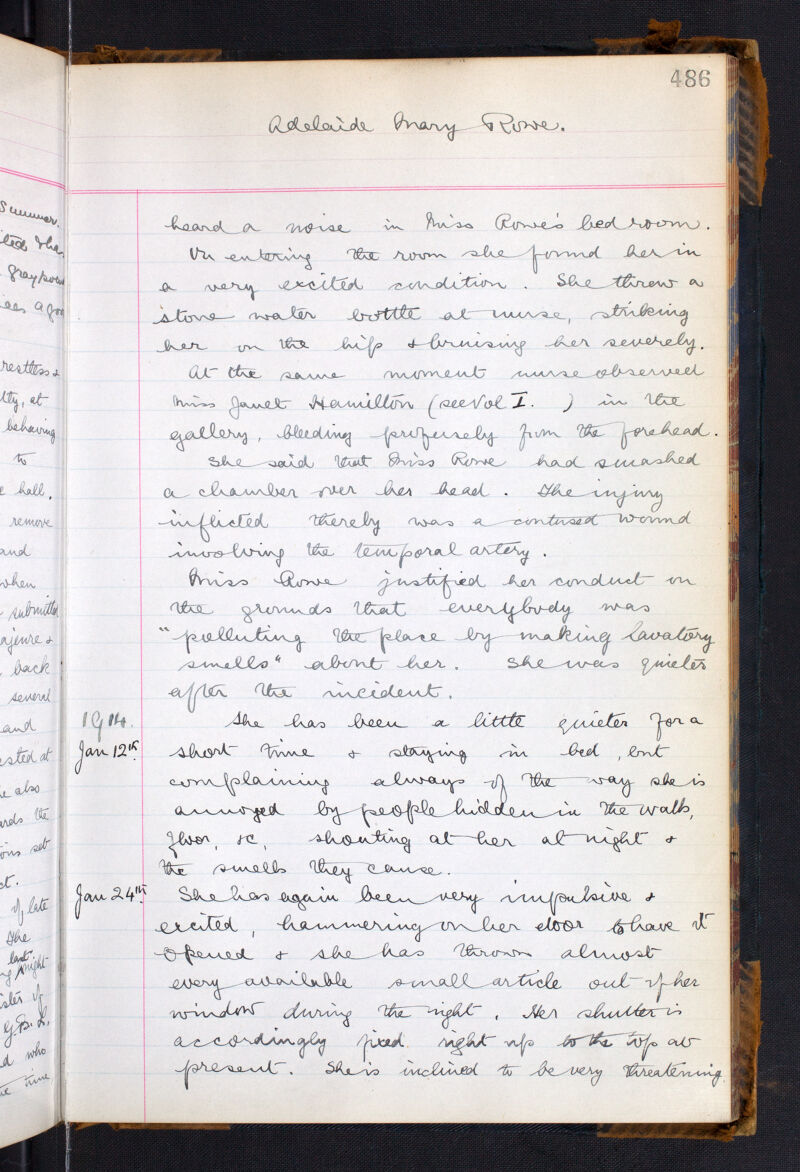 486
Adelaide Mary Rowe.
heard a noise in Miss Rowe's bed room.
On entering the room she found her in
a very excited condition. She threw a
stone water bottle at nurse, striking
her on the hip & bruising her severely.
At the same moment nurse observed
Miss Janet Hamilton (see Vol I. ) in the
gallery, bleeding profusely from the forehead.
She said that Miss Rowe had smashed
a chamber over her head. The injury
inflicted thereby was a contused wound
involving the temporal artery.
Miss Rowe justified her conduct on
the grounds that everybody was
"polluting the place by making lavatory
smells" about her. She was quieter
after the incident.
1914. She has been a little quieter for a
Jan 12th. short time & staying in bed, but
complaining always of the way she is
annoyed by people hidden in the walls,
floor, &c, shouting at her at night &
the smells they cause.
Jan 24th. She has again been very impulsive &
excited, hammering on her door to have it
opened & she has thrown almost
every available small article out of her
window during the night. Her shutter is
accordingly fixed right up to the top at
present. She is inclined to be very threatening
Summer.
restless &
behaving
to
hall.
remove
and
when
submitted
back
several
and
also
of late
The
last
night
who
time